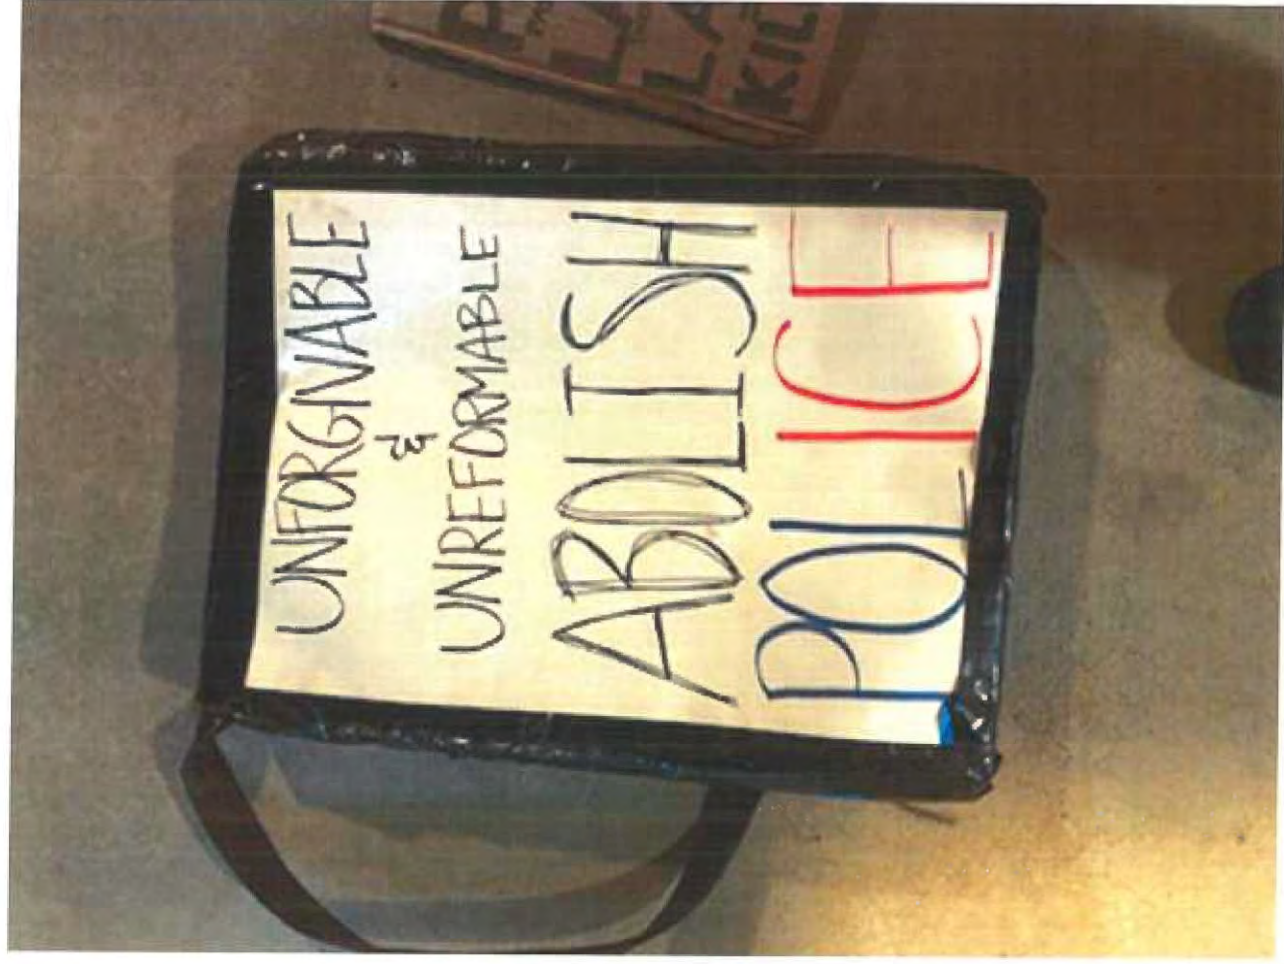 UNFORGIVABLE
&
UNREFORMABLE
ABOLISH
POLICE
KIL